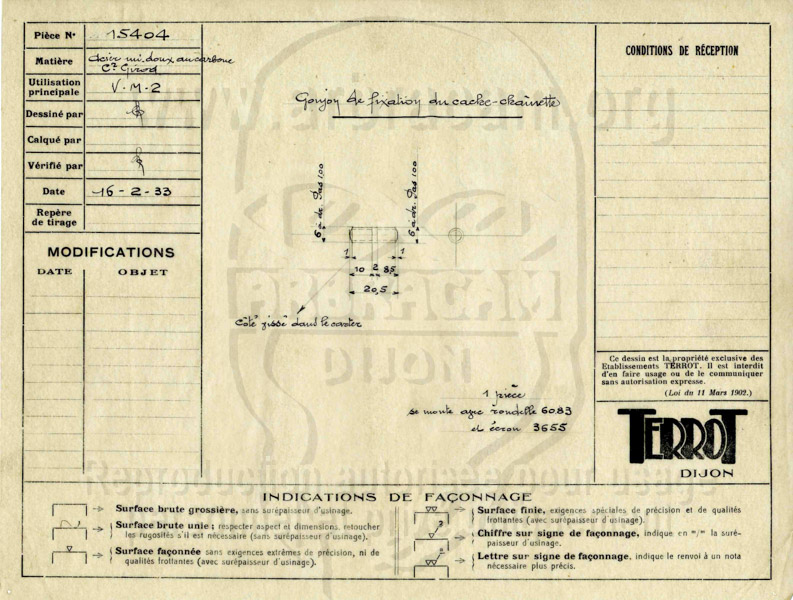 Pièce N° 15404
Matière acier mi.doux au carbone
Cᵗᵉ Girod
Utilisation principale V.M.2
Dessiné par
Calqué par
Vérifié par
Date 16-2-33
Repère de tirage
MODIFICATIONS
DATE OBJET
Goujon de fixation du cache-chaînette
6 à dr. Pas 1,00
6 à dr. Pas 1,00
1 1
10 2 8,5
20,5
Côté vissé dans le carter
1 pièce
se monte avec rondelle 6083
et écrou 3655
CONDITIONS DE RÉCEPTION
Ce dessin est la propriété exclusive des
Etablissements TERROT. Il est interdit
d'en faire usage ou de le communiquer
sans autorisation expresse.
(Loi du 11 Mars 1902.)
TERROT
DIJON
INDICATIONS DE FAÇONNAGE
Surface brute grossière, sans surépaisseur d'usinage.
Surface brute unie : respecter aspect et dimensions, retoucher
les rugosités s'il est nécessaire (sans surépaisseur d'usinage).
Surface façonnée sans exigences extrêmes de précision, ni de
qualités frottantes (avec surépaisseur d'usinage).
Surface finie, exigences spéciales de précision et de qualités
frottantes (avec surépaisseur d'usinage).
3
Chiffre sur signe de façonnage, indique en ᵐ/ᵐ la suré-
paisseur d'usinage.
a
Lettre sur signe de façonnage, indique le renvoi à un nota
nécessaire plus précis.
www.arbracam.org
ARBRACAM
DIJON
Reproduction autorisée pour usage